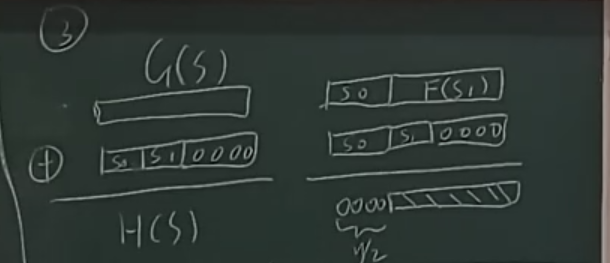 ③
G(S)
⊕ S0 S1 0000
H(S)
S0 F(S1)
S0 S1 0000
0000
n/2